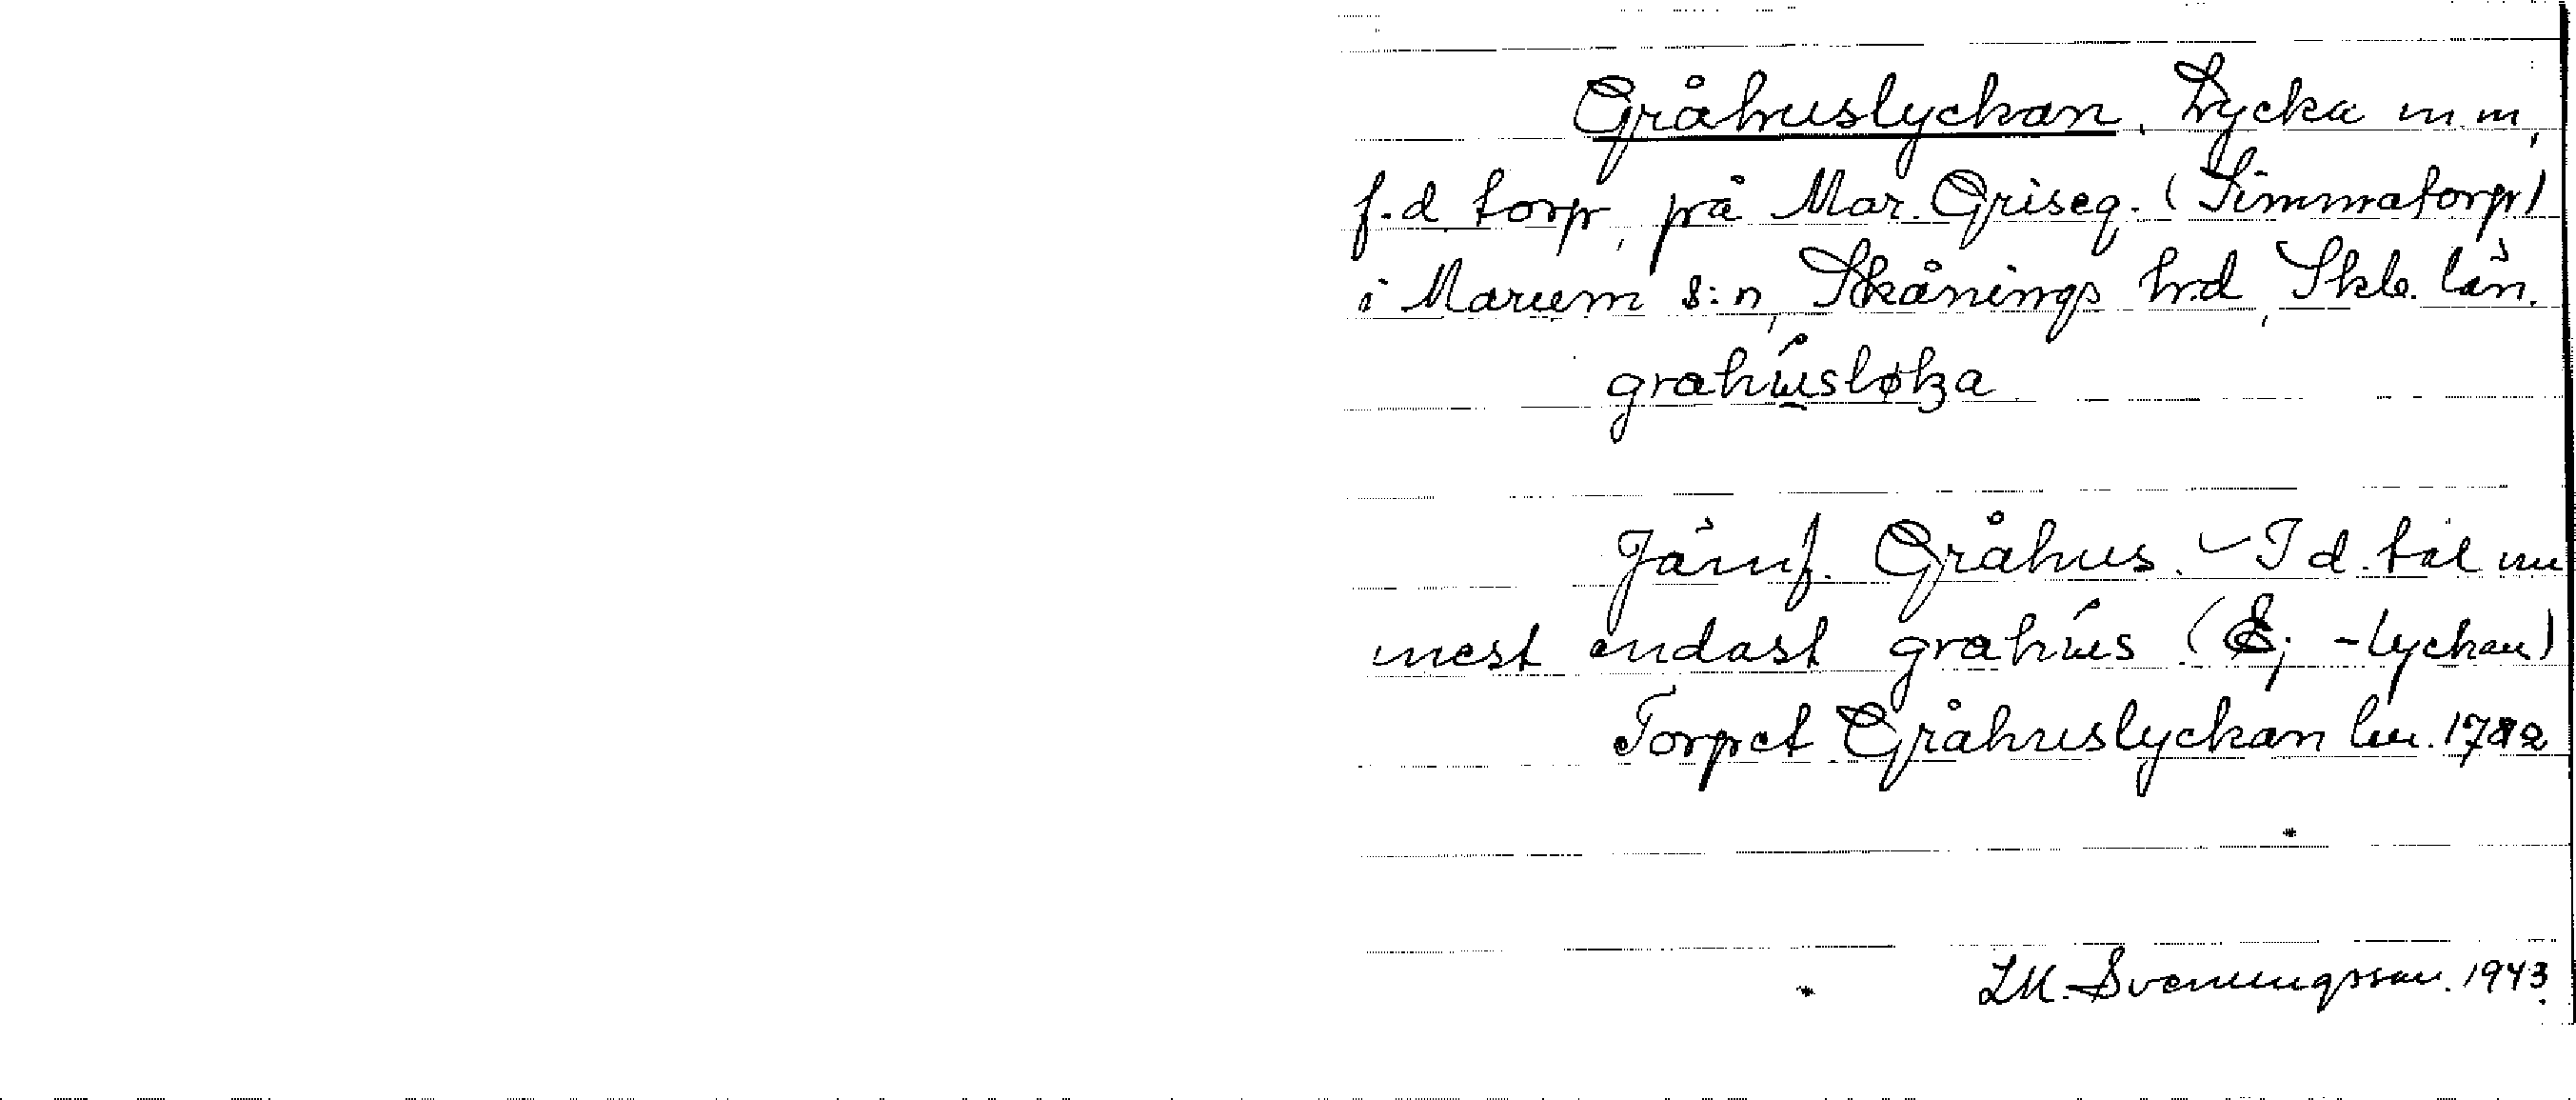 Gråhuslyckan. Lycka m.m,
f.d. torp, på Mar. Griseg. (Simmatorp)
i Marum s:n, Skånings h.d, Skb. län.
grahu̇sløka
Jämf. Gråhus. – I d. tal nu
mest endast grahu̇s (Ej -lyckan)
Torpet Gråhuslyckan 1782
I.M. Svenungsson. 1943.